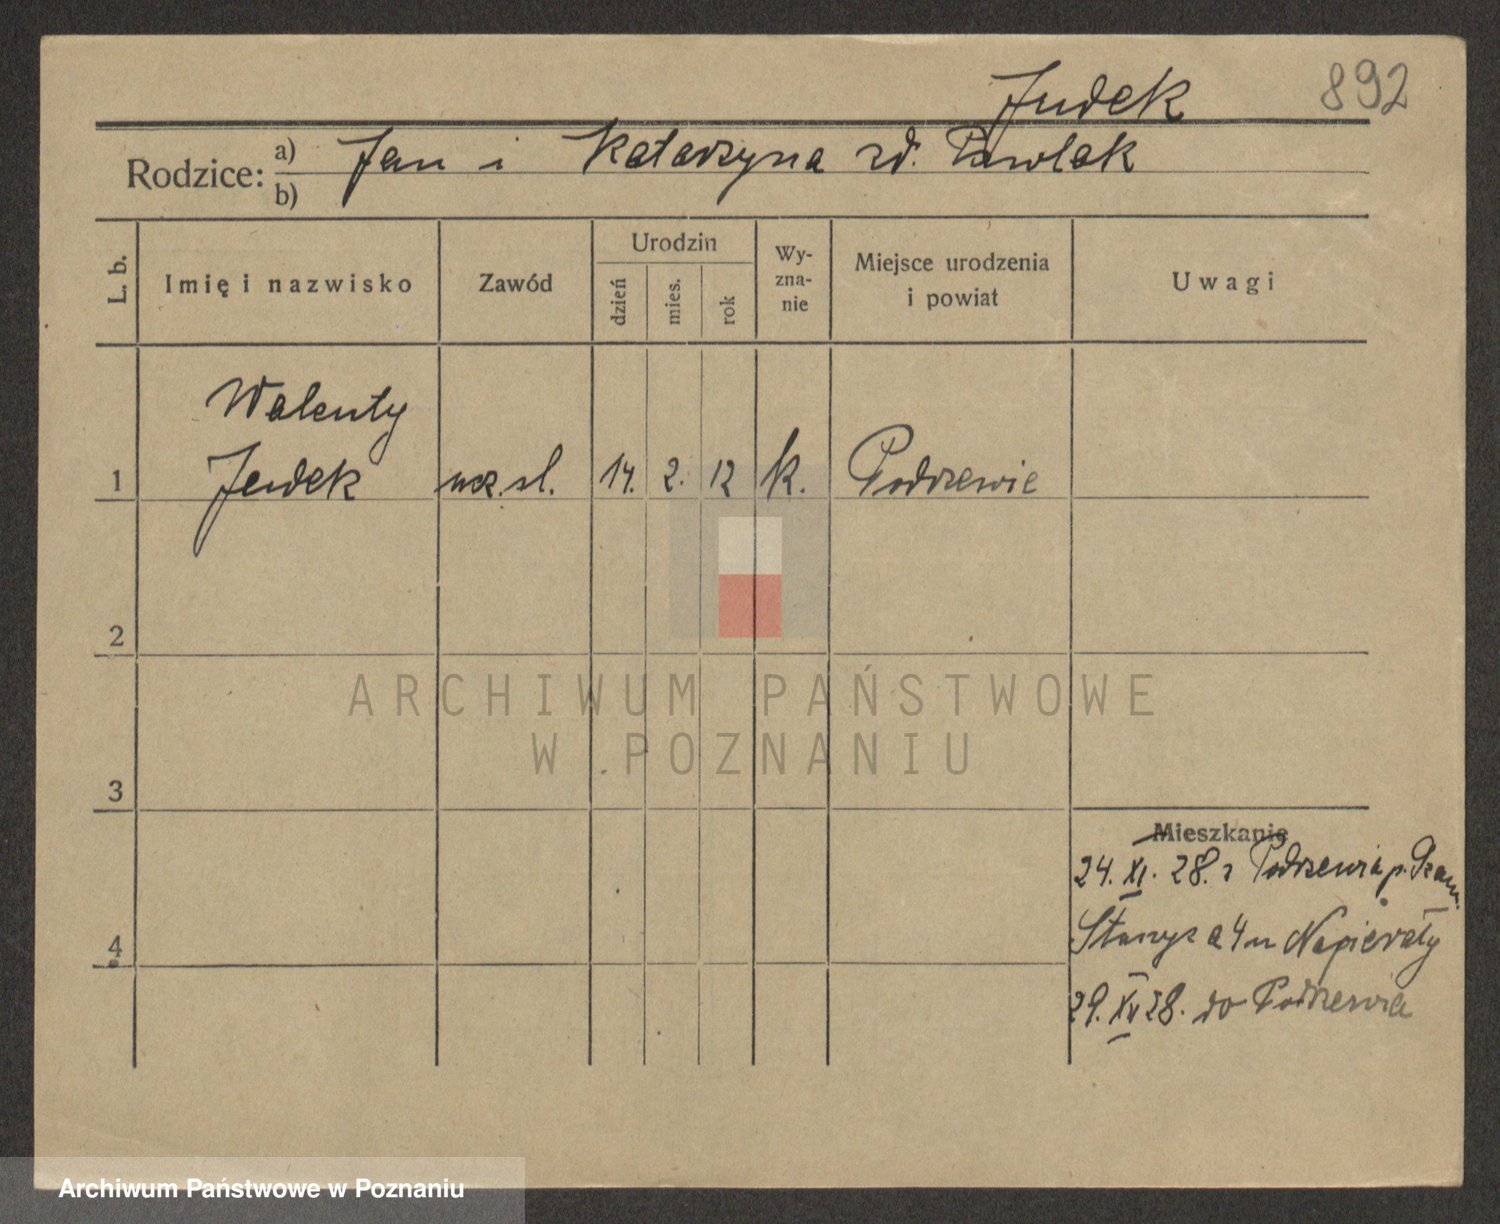 Judek 892
Rodzice: a) Jan i Katarzyna zd. Pawlak
b)
L. b. Imię i nazwisko Zawód Urodzin dzień mies. rok Wy-zna-nie Miejsce urodzenia i powiat Uwagi
Walenty
1 Judek ucz. sl. 14. 2. 12 k. Podrzewie
2
ARCHIWUM PAŃSTWOWE
W POZNANIU
3
Mieszkanie
24. XI. 28. z Podrzewia p.
4 u Napierały
4
28. do Podrzewia
Archiwum Państwowe w Poznaniu